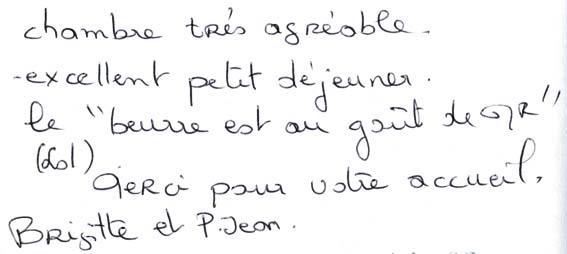 chambre très agréable.
-excellent petit déjeuner.
le "beurre est au goût de
(lol)
Merci pour votre accueil.
Brigitte et P.Jean.